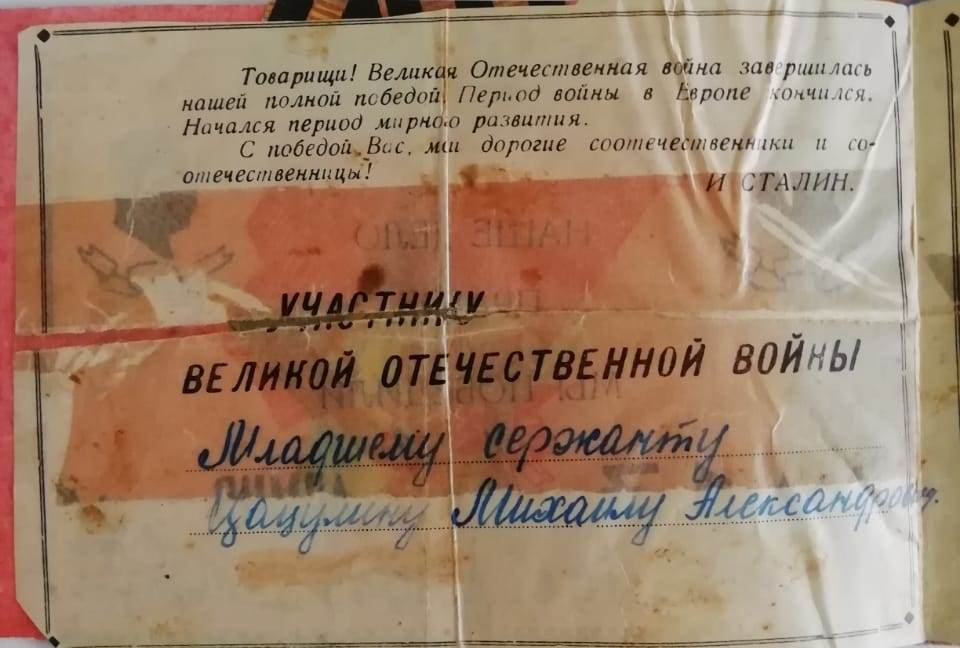 Товарищи! Великая Отечественная война завершилась
нашей полной победой. Период войны в Европе кончился.
Начался период мирного развития.
С победой Вас, мои дорогие соотечественники и со-
отечественницы!
И СТАЛИН.
НАШЕ ДЕЛО
УЧАСТНИКУ
ВЕЛИКОЙ ОТЕЧЕСТВЕННОЙ ВОЙНЫ
МЫ ПОБЕДИЛИ
Младшему сержанту
Цацулину Михаилу Александрович.